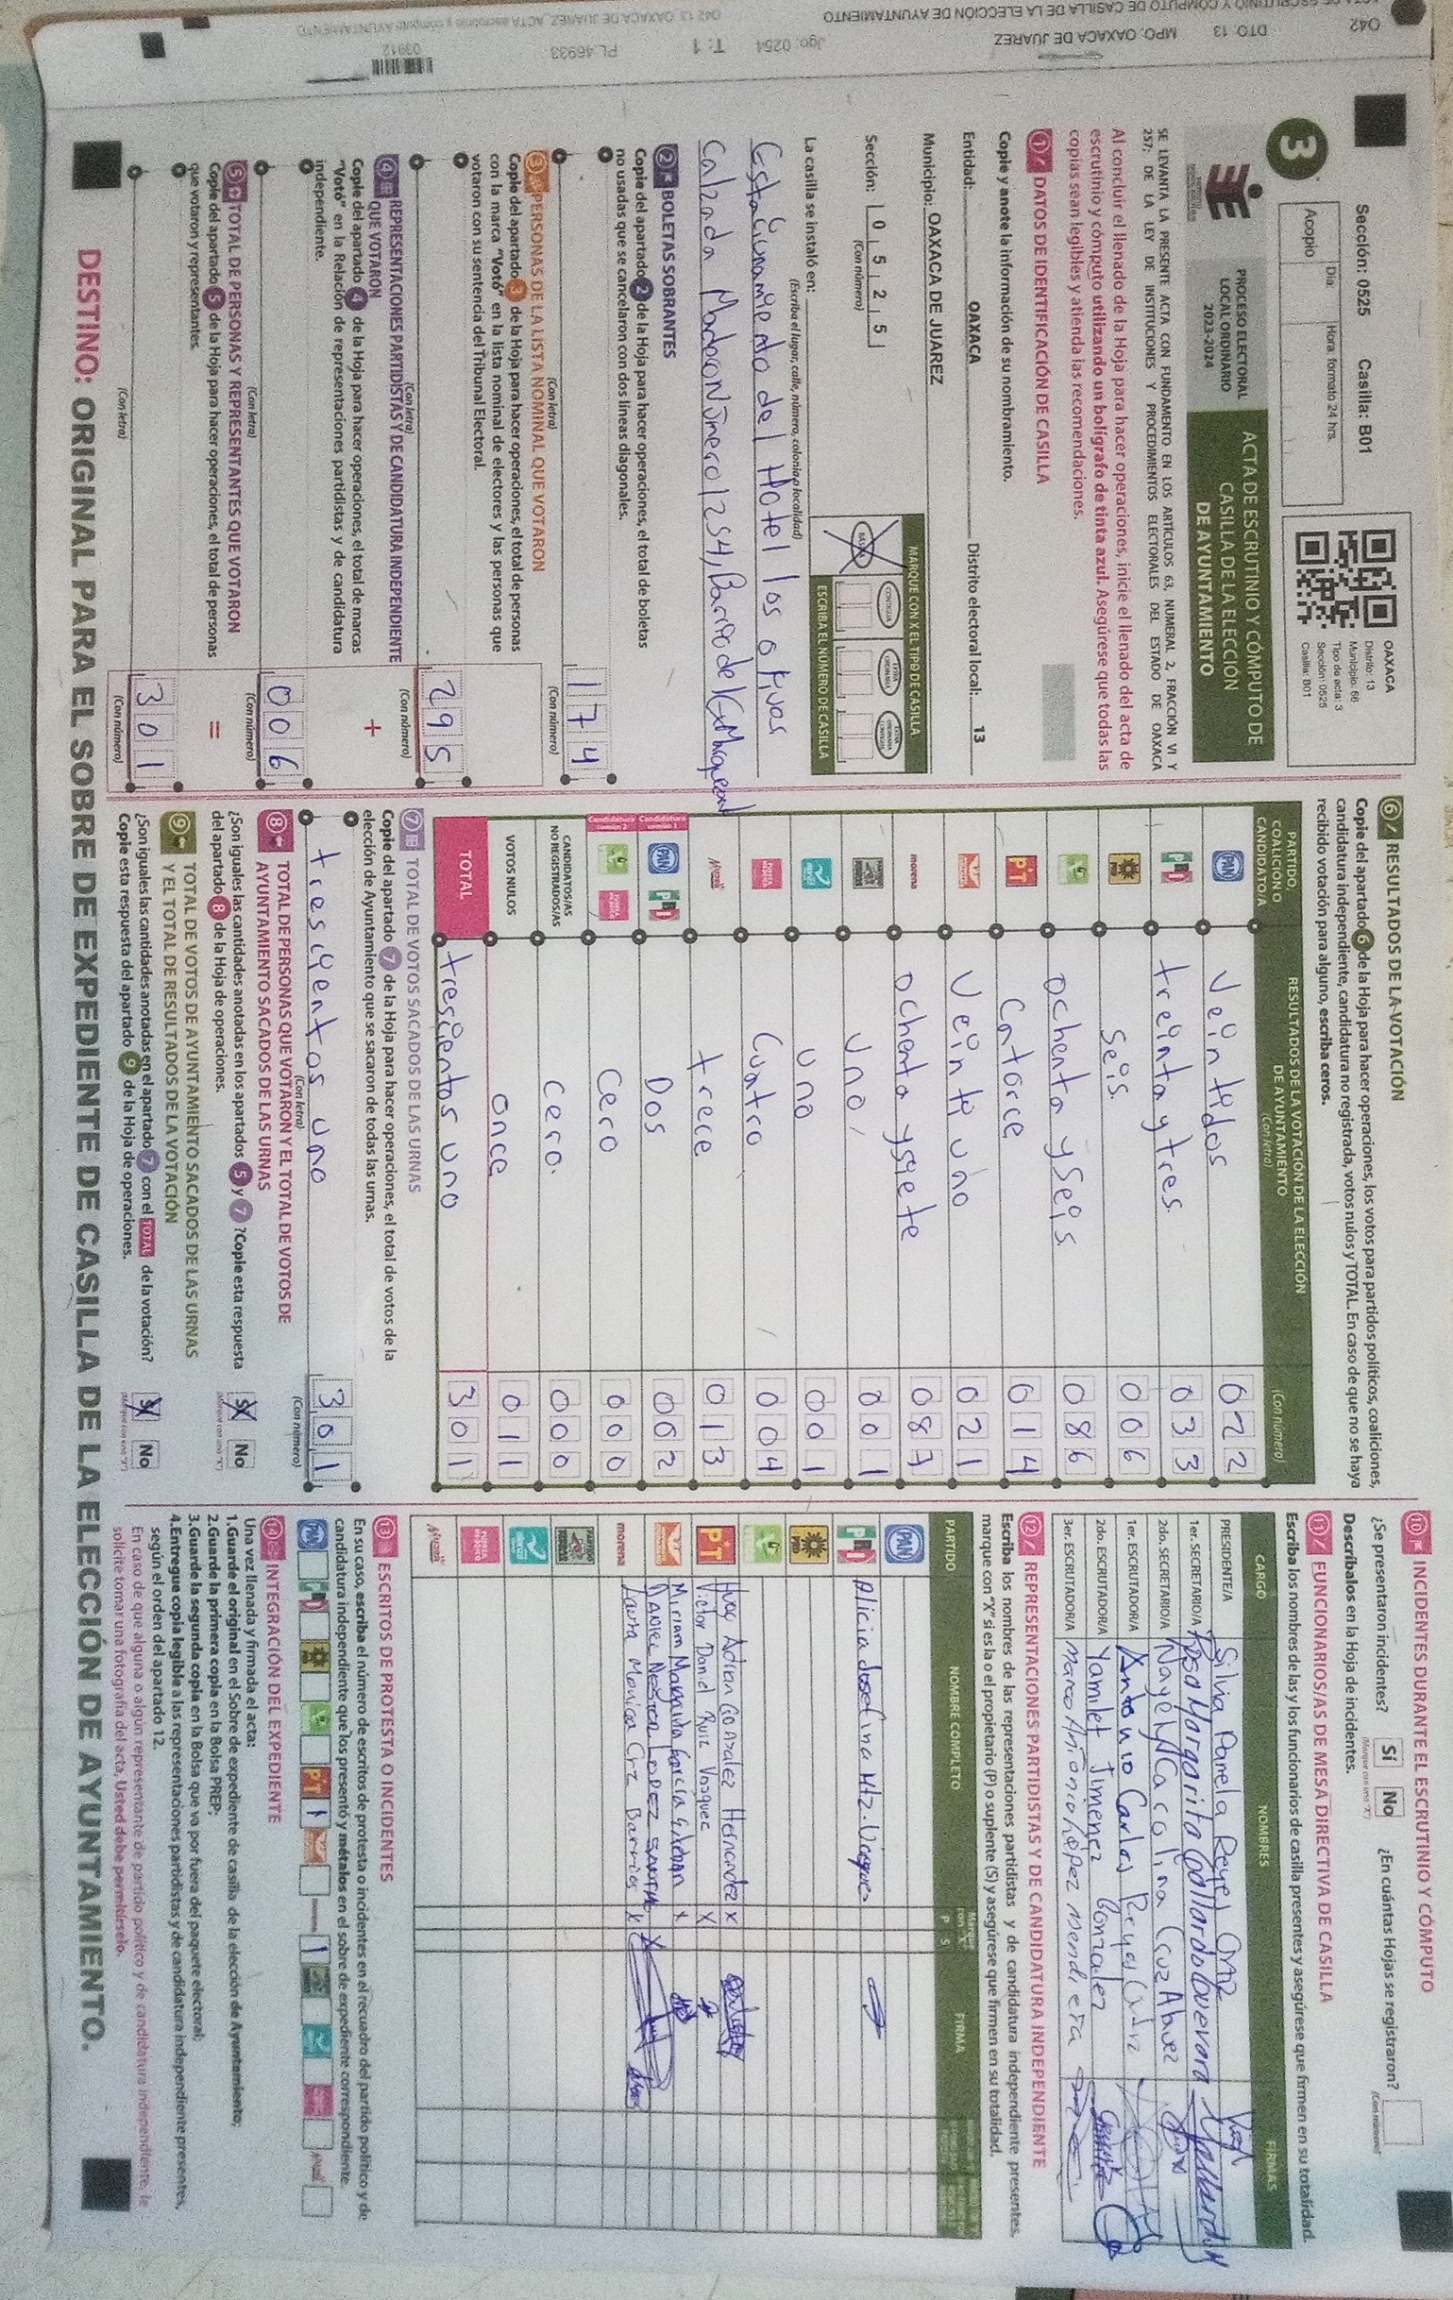 ACTA DE ESCRUTINIO Y CÓMPUTO DE CASILLA DE LA ELECCIÓN DE AYUNTAMIENTO
042 DTO. 13 MPO. OAXACA DE JUAREZ Jgo. 0254 T: 1 PL 46933 03912
042 13 OAXACA DE JUAREZ
Sección: 0525 Casilla: B01
Día: Hora: formato 24 hrs.
Acopio
3
OAXACA
Distrito: 13
Municipio: 66
Tipo de acta: 3
Sección: 0525
Casilla: B01
PROCESO ELECTORAL
LOCAL ORDINARIO
2023-2024
ACTA DE ESCRUTINIO Y CÓMPUTO DE
CASILLA DE LA ELECCIÓN
DE AYUNTAMIENTO
SE LEVANTA LA PRESENTE ACTA CON FUNDAMENTO EN LOS ARTÍCULOS 63, NUMERAL 2, FRACCIÓN VI Y
257; DE LA LEY DE INSTITUCIONES Y PROCEDIMIENTOS ELECTORALES DEL ESTADO DE OAXACA
Al concluir el llenado de la Hoja para hacer operaciones, inicie el llenado del acta de
escrutinio y cómputo utilizando un bolígrafo de tinta azul. Asegúrese que todas las
copias sean legibles y atienda las recomendaciones.
1 DATOS DE IDENTIFICACIÓN DE CASILLA
Copie y anote la información de su nombramiento.
Entidad: OAXACA Distrito electoral local: 13
Municipio: OAXACA DE JUAREZ
Sección: 0 5 2 5
(Con número)
MARQUE CON X EL TIPO DE CASILLA
ESCRIBA EL NÚMERO DE CASILLA
La casilla se instaló en:
(Escriba el lugar, calle, número, colonia o localidad)
Estacionamiento del Hotel los olivos
Calzada Madero Número 1254, Barrio del
2 BOLETAS SOBRANTES
Copie del apartado 2 de la Hoja para hacer operaciones, el total de boletas
no usadas que se cancelaron con dos líneas diagonales.
174
(Con letra) (Con número)
3 PERSONAS DE LA LISTA NOMINAL QUE VOTARON
Copie del apartado 3 de la Hoja para hacer operaciones, el total de personas
con la marca "Votó" en la lista nominal de electores y las personas que
votaron con su sentencia del Tribunal Electoral.
295
(Con letra) (Con número)
4 REPRESENTACIONES PARTIDISTAS Y DE CANDIDATURA INDEPENDIENTE
QUE VOTARON +
Copie del apartado 4 de la Hoja para hacer operaciones, el total de marcas
"Votó" en la Relación de representaciones partidistas y de candidatura
independiente.
006
(Con letra) (Con número)
5 TOTAL DE PERSONAS Y REPRESENTANTES QUE VOTARON =
Copie del apartado 5 de la Hoja para hacer operaciones, el total de personas
que votaron y representantes.
301
(Con letra) (Con número)
6 RESULTADOS DE LA VOTACIÓN
Copie del apartado 6 de la Hoja para hacer operaciones, los votos para partidos políticos, coaliciones,
candidatura independiente, candidatura no registrada, votos nulos y TOTAL. En caso de que no se haya
recibido votación para alguno, escriba ceros.
PARTIDO,
COALICIÓN O
CANDIDATO/A
RESULTADOS DE LA VOTACIÓN DE LA ELECCIÓN
DE AYUNTAMIENTO
(Con letra)
(Con número)
PAN Veintidos 022
PRI treinta y tres 033
PRD Seis 006
ochenta y seis 086
PT Catorce 014
Veinte uno 021
morena ochenta y siete 087
Uno 001
uno 001
Cuatro 004
trece 013
Candidatura común 1 PAN PRI Dos 002
Candidatura común 2 Cero 000
CANDIDATOS/AS
NO REGISTRADOS/AS Cero. 000
VOTOS NULOS once 011
TOTAL trescientos uno 301
7 TOTAL DE VOTOS SACADOS DE LAS URNAS
Copie del apartado 7 de la Hoja para hacer operaciones, el total de votos de la
elección de Ayuntamiento que se sacaron de todas las urnas.
trescientos uno 301
(Con letra) (Con número)
8 TOTAL DE PERSONAS QUE VOTARON Y EL TOTAL DE VOTOS DE
AYUNTAMIENTO SACADOS DE LAS URNAS
¿Son iguales las cantidades anotadas en los apartados 5 y 7 ? Copie esta respuesta
del apartado 8 de la Hoja de operaciones.
Sí No
9 TOTAL DE VOTOS DE AYUNTAMIENTO SACADOS DE LAS URNAS
Y EL TOTAL DE RESULTADOS DE LA VOTACIÓN
¿Son iguales las cantidades anotadas en el apartado 7 con el TOTAL de la votación?
Copie esta respuesta del apartado 9 de la Hoja de operaciones.
Sí No
10 INCIDENTES DURANTE EL ESCRUTINIO Y CÓMPUTO
¿Se presentaron incidentes? Sí No ¿En cuántas Hojas se registraron?
(Con número)
Descríbalos en la Hoja de incidentes.
11 FUNCIONARIOS/AS DE MESA DIRECTIVA DE CASILLA
Escriba los nombres de las y los funcionarios de casilla presentes y asegúrese que firmen en su totalidad.
CARGO NOMBRES FIRMAS
PRESIDENTE/A Silvia Pamela Reyes Cruz
1er. SECRETARIO/A Rosa Margarita Gallardo Guevara
2do. SECRETARIO/A Nayelly Carolina Cruz
1er. ESCRUTADOR/A Antonio Carlos Reyes
2do. ESCRUTADOR/A Yamilet Jimenez Gonzalez
3er. ESCRUTADOR/A Marco Antonio López Mendieta
12 REPRESENTACIONES PARTIDISTAS Y DE CANDIDATURA INDEPENDIENTE
Escriba los nombres de las representaciones partidistas y de candidatura independiente presentes,
marque con "X" si es la o el propietario (P) o suplente (S) y asegúrese que firmen en su totalidad.
PARTIDO NOMBRE COMPLETO P S FIRMA
PAN
PRI Alicia Josefina Htz. Vasquez
PRD
Adrian Gonzalez Hernandez x
PT Victor Daniel Ruiz Vasquez X
Miriam Margarita García x
LOPEZ X
morena Laura Monica Crz Barrios x
13 ESCRITOS DE PROTESTA O INCIDENTES
En su caso, escriba el número de escritos de protesta o incidentes en el recuadro del partido político y de
candidatura independiente que los presentó y métalos en el sobre de expediente correspondiente.
14 INTEGRACIÓN DEL EXPEDIENTE
Una vez llenada y firmada el acta:
1.Guarde el original en el Sobre de expediente de casilla de la elección de Ayuntamiento;
2.Guarde la primera copia en la Bolsa PREP;
3.Guarde la segunda copia en la Bolsa que va por fuera del paquete electoral;
4.Entregue copia legible a las representaciones partidistas y de candidatura independiente presentes,
según el orden del apartado 12.
En caso de que alguna o algún representante de partido político y de candidatura independiente, le
solicite tomar una fotografía del acta, Usted debe permitírselo.
DESTINO: ORIGINAL PARA EL SOBRE DE EXPEDIENTE DE CASILLA DE LA ELECCIÓN DE AYUNTAMIENTO.